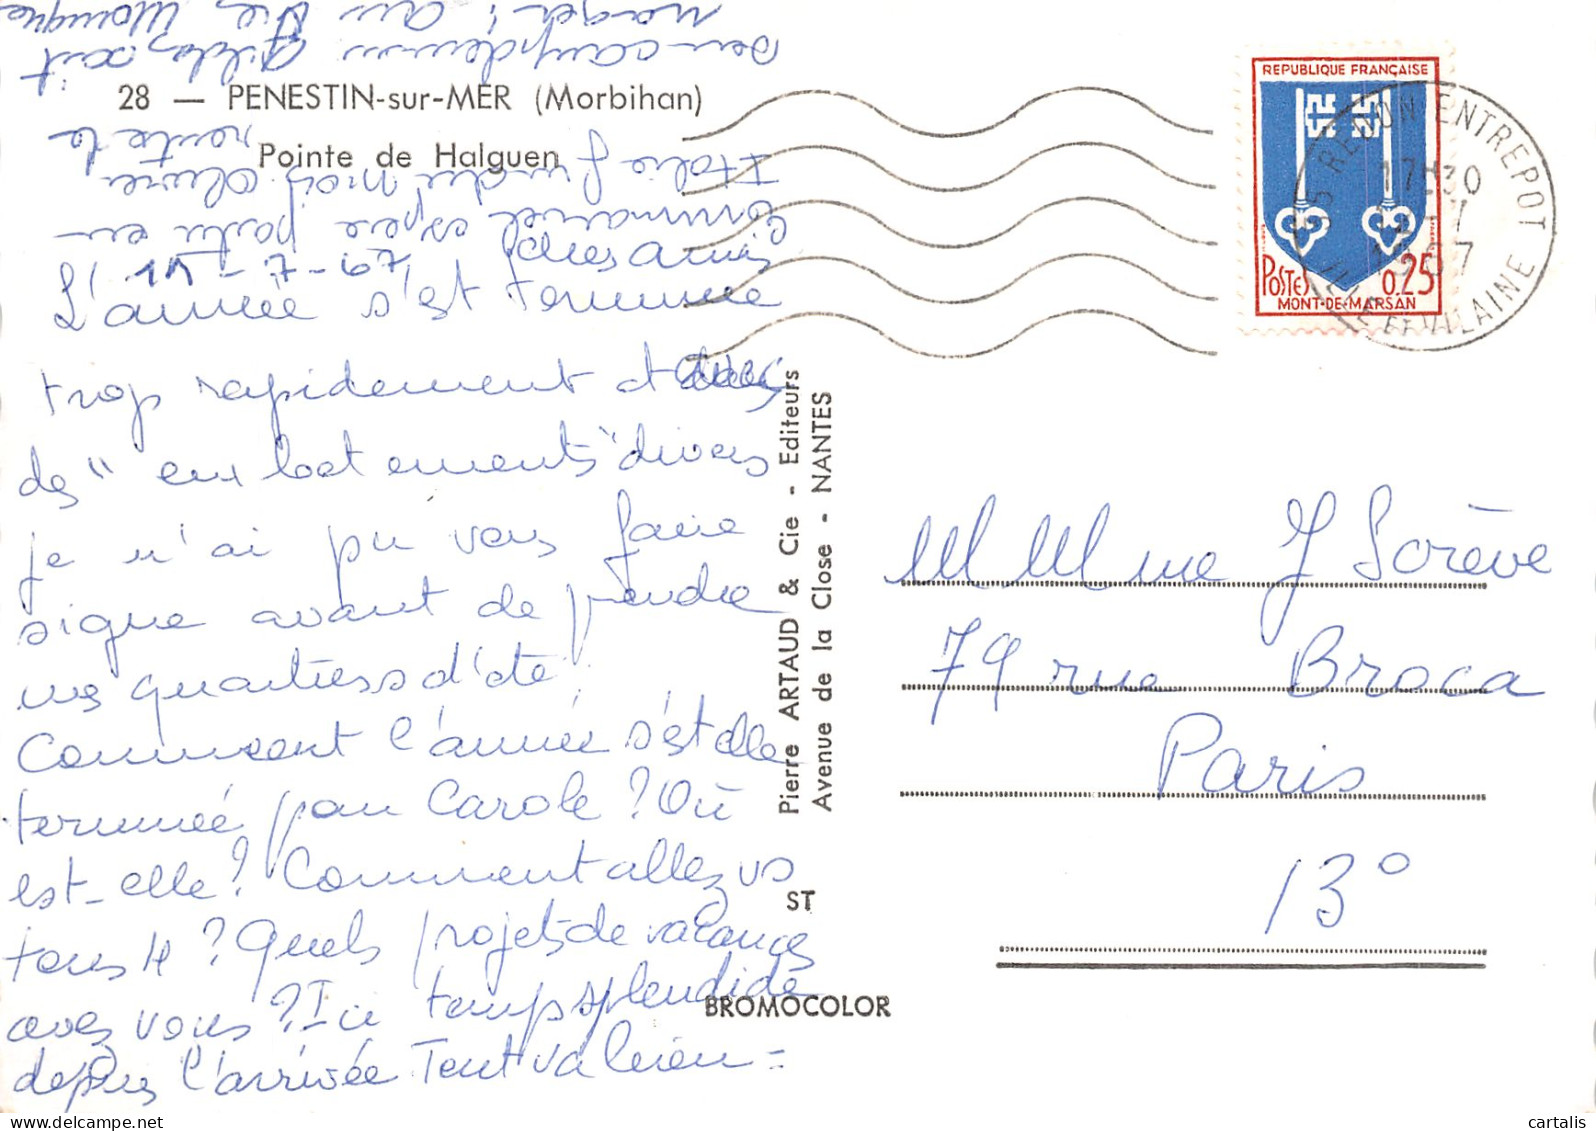 28 — PENESTIN-sur-MER (Morbihan)
Pointe de Halguen
11-7-67
Chers amis
L'année s'est terminée
trop rapidement et avec
des "embêtements" divers
je n'ai pu vous faire
signe avant de prendre
nos quartiers d'été.
Comment l'année s'est elle
terminée pour Carole ? Où
est-elle ? Comment allez vs
tous 4 ? Quels projets de vacances
avez vous ? Ici temps splendide
depuis l'arrivée Tout va bien =
Emmanuel espère partir en
Italie fin du mois Olivier
reste le
nager !
Pierre ARTAUD & Cie - Editeurs
Avenue de la Close - NANTES
ST
BROMOCOLOR
REPUBLIQUE FRANÇAISE
POSTES 0.25
MONT-DE-MARSAN
35 REDON ENTREPOT
17H30
1967
ILLE ET VILAINE
M Mme J Lorève
79 rue Broca
Paris
13°
cartalis | delcampe.net